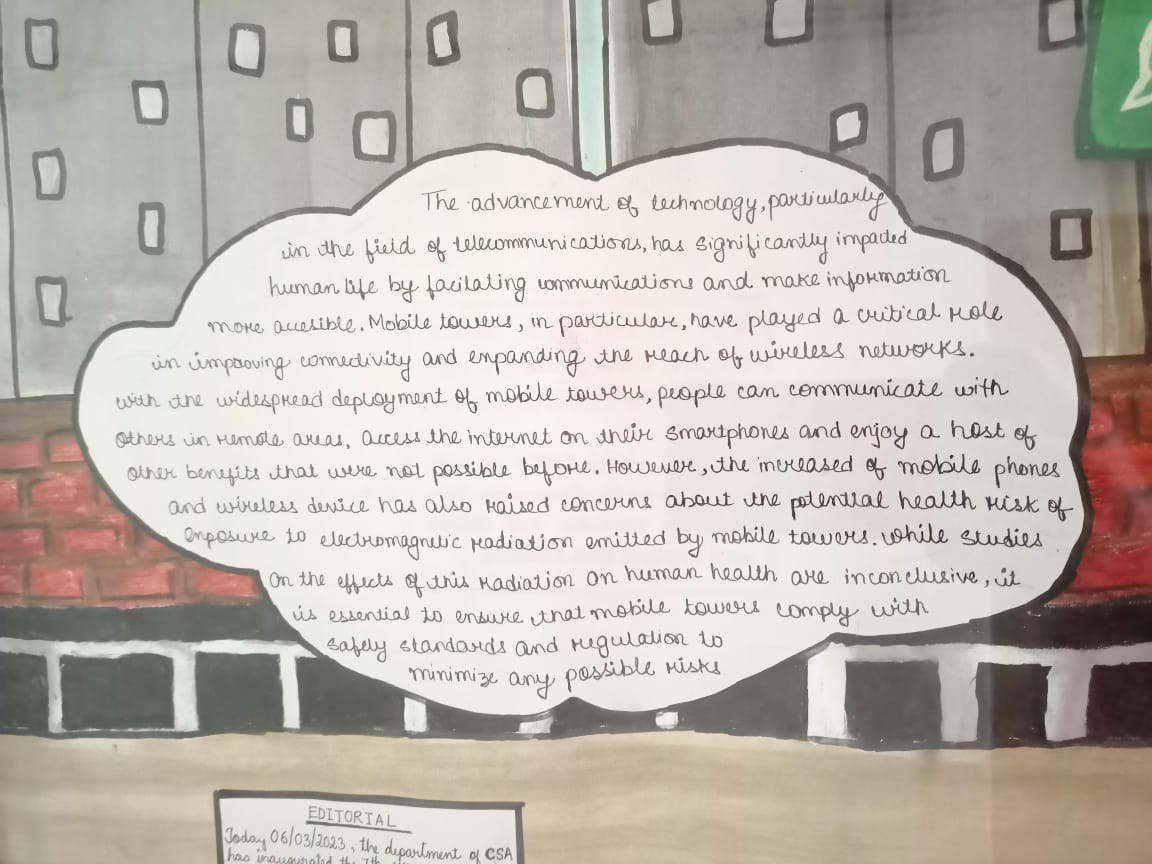 The advancement of technology, particularly
in the field of telecommunications, has significantly impacted
human life by facilating communications and make information
more accesible. Mobile towers, in particular, have played a critical role
in improoving connectivity and expanding the reach of wireless networks.
with the widespread deployment of mobile towers, people can communicate with
others in remote areas, access the internet on their smartphones and enjoy a host of
other benefits that were not possible before. However, the increased of mobile phones
and wireless device has also raised concerns about the potential health risk of
exposure to electromagnetic radiation emitted by mobile towers. while studies
on the effects of this radiation on human health are inconclusive, it
is essential to ensure that mobile towers comply with
safely standards and regulation to
minimize any possible risks
EDITORIAL
Today 06/03/2023, the department of CSA
has inaugurated the 7th